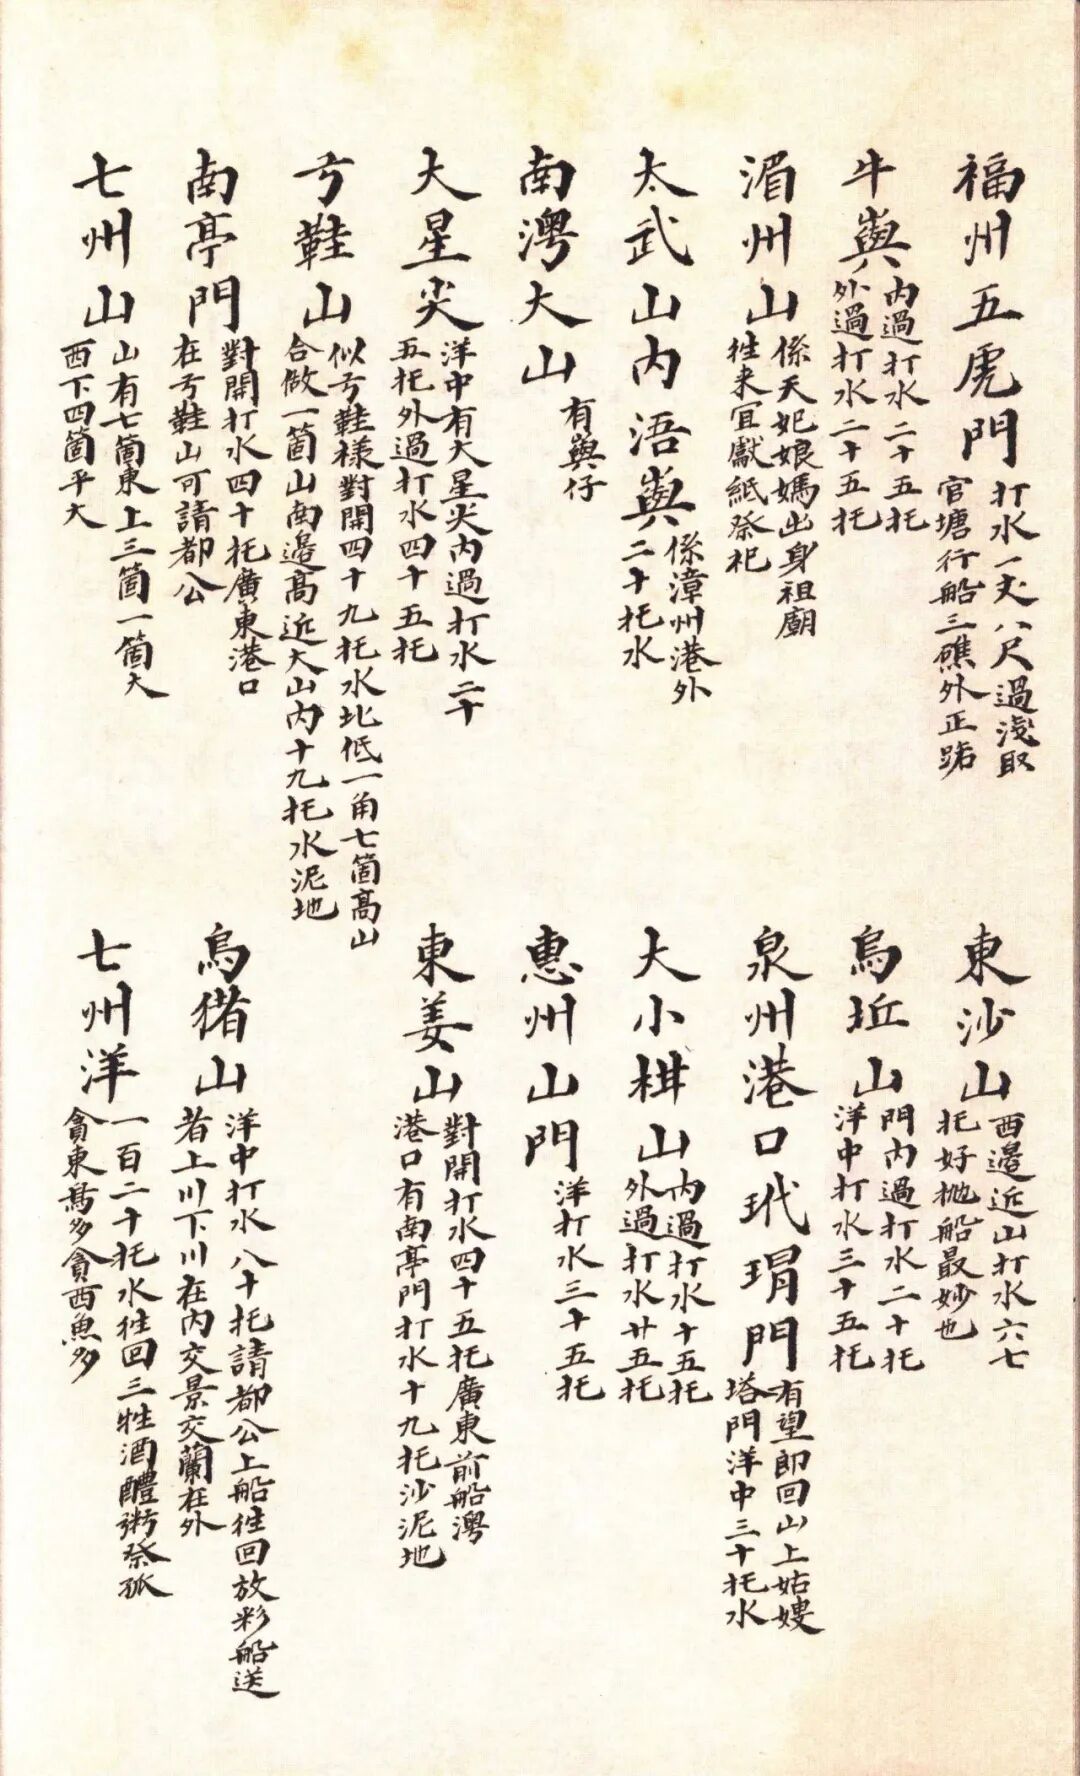 福州五虎門
打水一丈八尺過淺取
官塘行船三礁外正路
東沙山
西邊近山打水六七
托好拋船最妙也
牛嶼
內過打水二十五托
外過打水二十五托
烏坵山
門內過打水二十托
洋中打水三十五托
湄州山
係天妃娘媽出身祖廟
往來宜獻紙祭祀
泉州港口玳瑁門
有望郎回山上姑嫂
塔門洋中三十托水
太武山內浯嶼
係漳州港外
二十托水
大小柑山
內過打水十五托
外過打水廿五托
南澳大山
有嶼仔
惠州山門
洋打水三十五托
大星尖
洋中有大星尖內過打水二十
五托外過打水四十五托
東姜山
對開打水四十五托廣東前船澳
港口有南亭門打水十九托沙泥地
弓鞋山
似弓鞋樣對開四十九托水北低一角七箇高山
合做一箇山南邊高近大山內十九托水泥地
南亭門
對開打水四十托廣東港口
在弓鞋山可請都公
烏猪山
洋中打水八十托請都公上船往回放彩船送
者上川下川在內交景交蘭在外
七州山
山有七箇東上三箇一箇大
西下四箇平大
七州洋
一百二十托水往回三牲酒醴粥祭孤
貪東鳥多貪西魚多